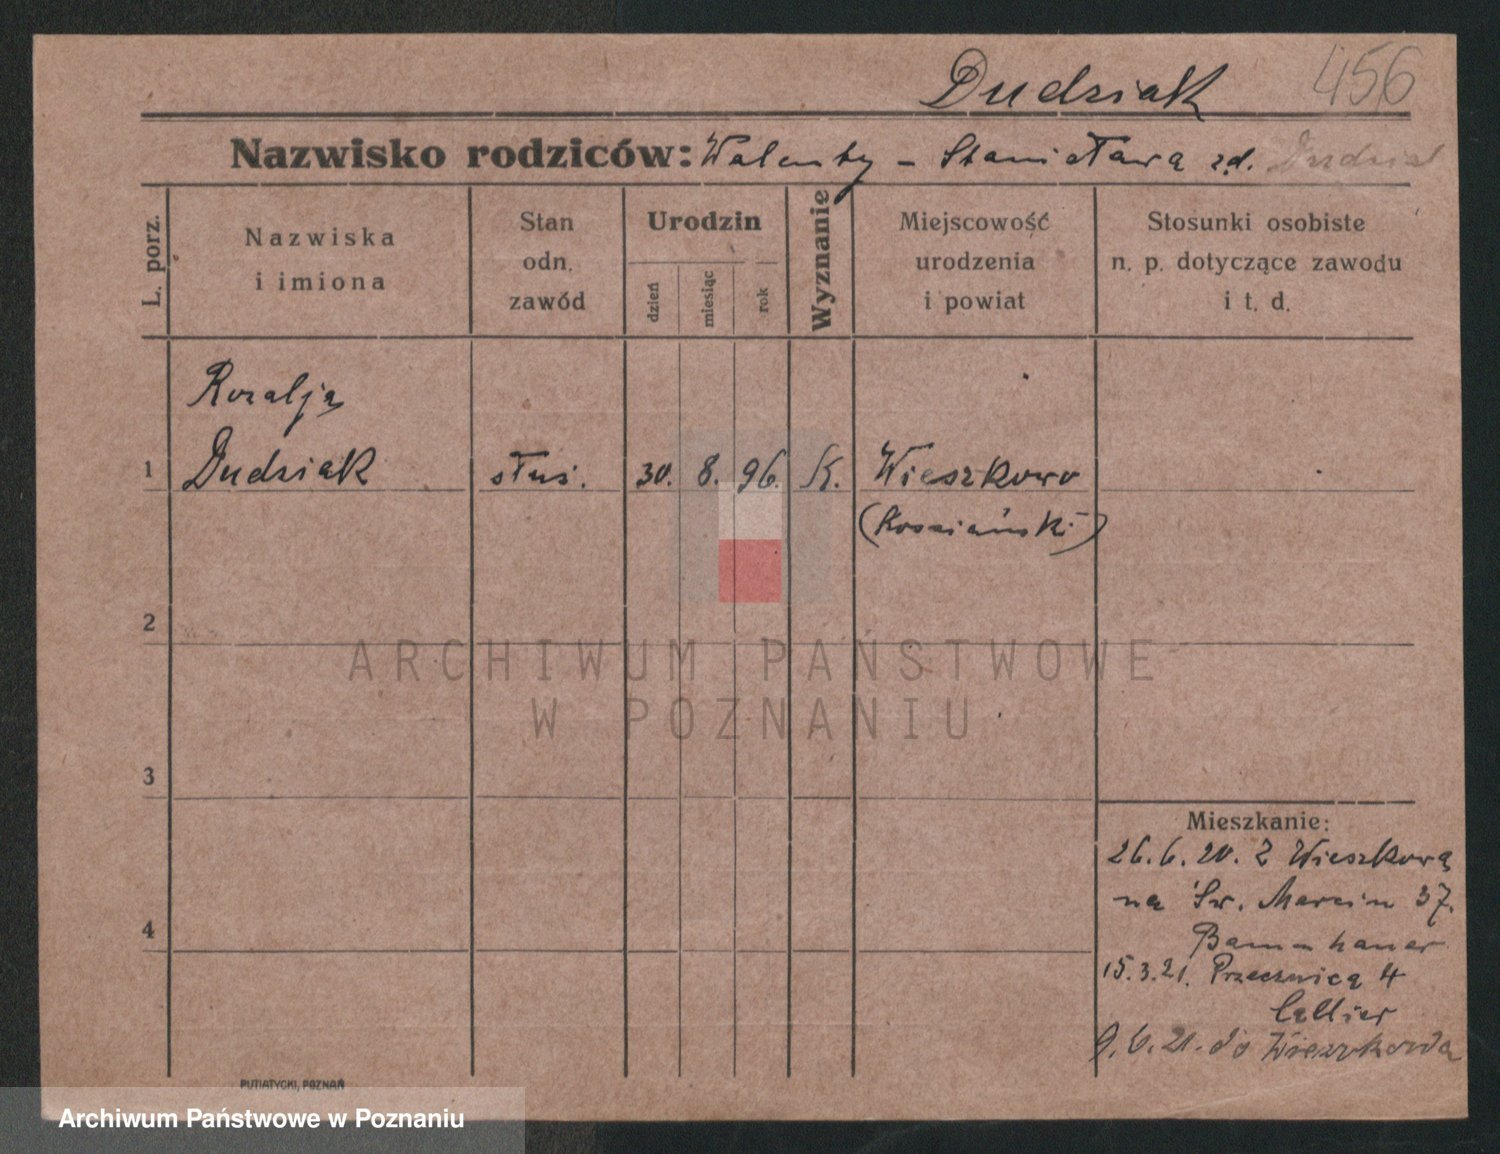 Dudziak 456
Nazwisko rodziców: Walenty - Stanisława zd. Dudziak
L. porz.
Nazwiska
i imiona
Stan
odn.
zawód
Urodzin
dzień
miesiąc
rok
Wyznanie
Miejscowość
urodzenia
i powiat
Stosunki osobiste
n. p. dotyczące zawodu
i t. d.
Rozalja
1 Dudziak służ. 30. 8. 96. K. Wieszkowo
(Kościański)
2
ARCHIWUM PAŃSTWOWE
W POZNANIU
3
Mieszkanie:
26.6.20. Z Wieszkowa
na Św. Marcin 37.
4
15.3.21. Przecznica 4
9.6.21. do Wieszkowa
PUTIATYCKI, POZNAŃ
Archiwum Państwowe w Poznaniu